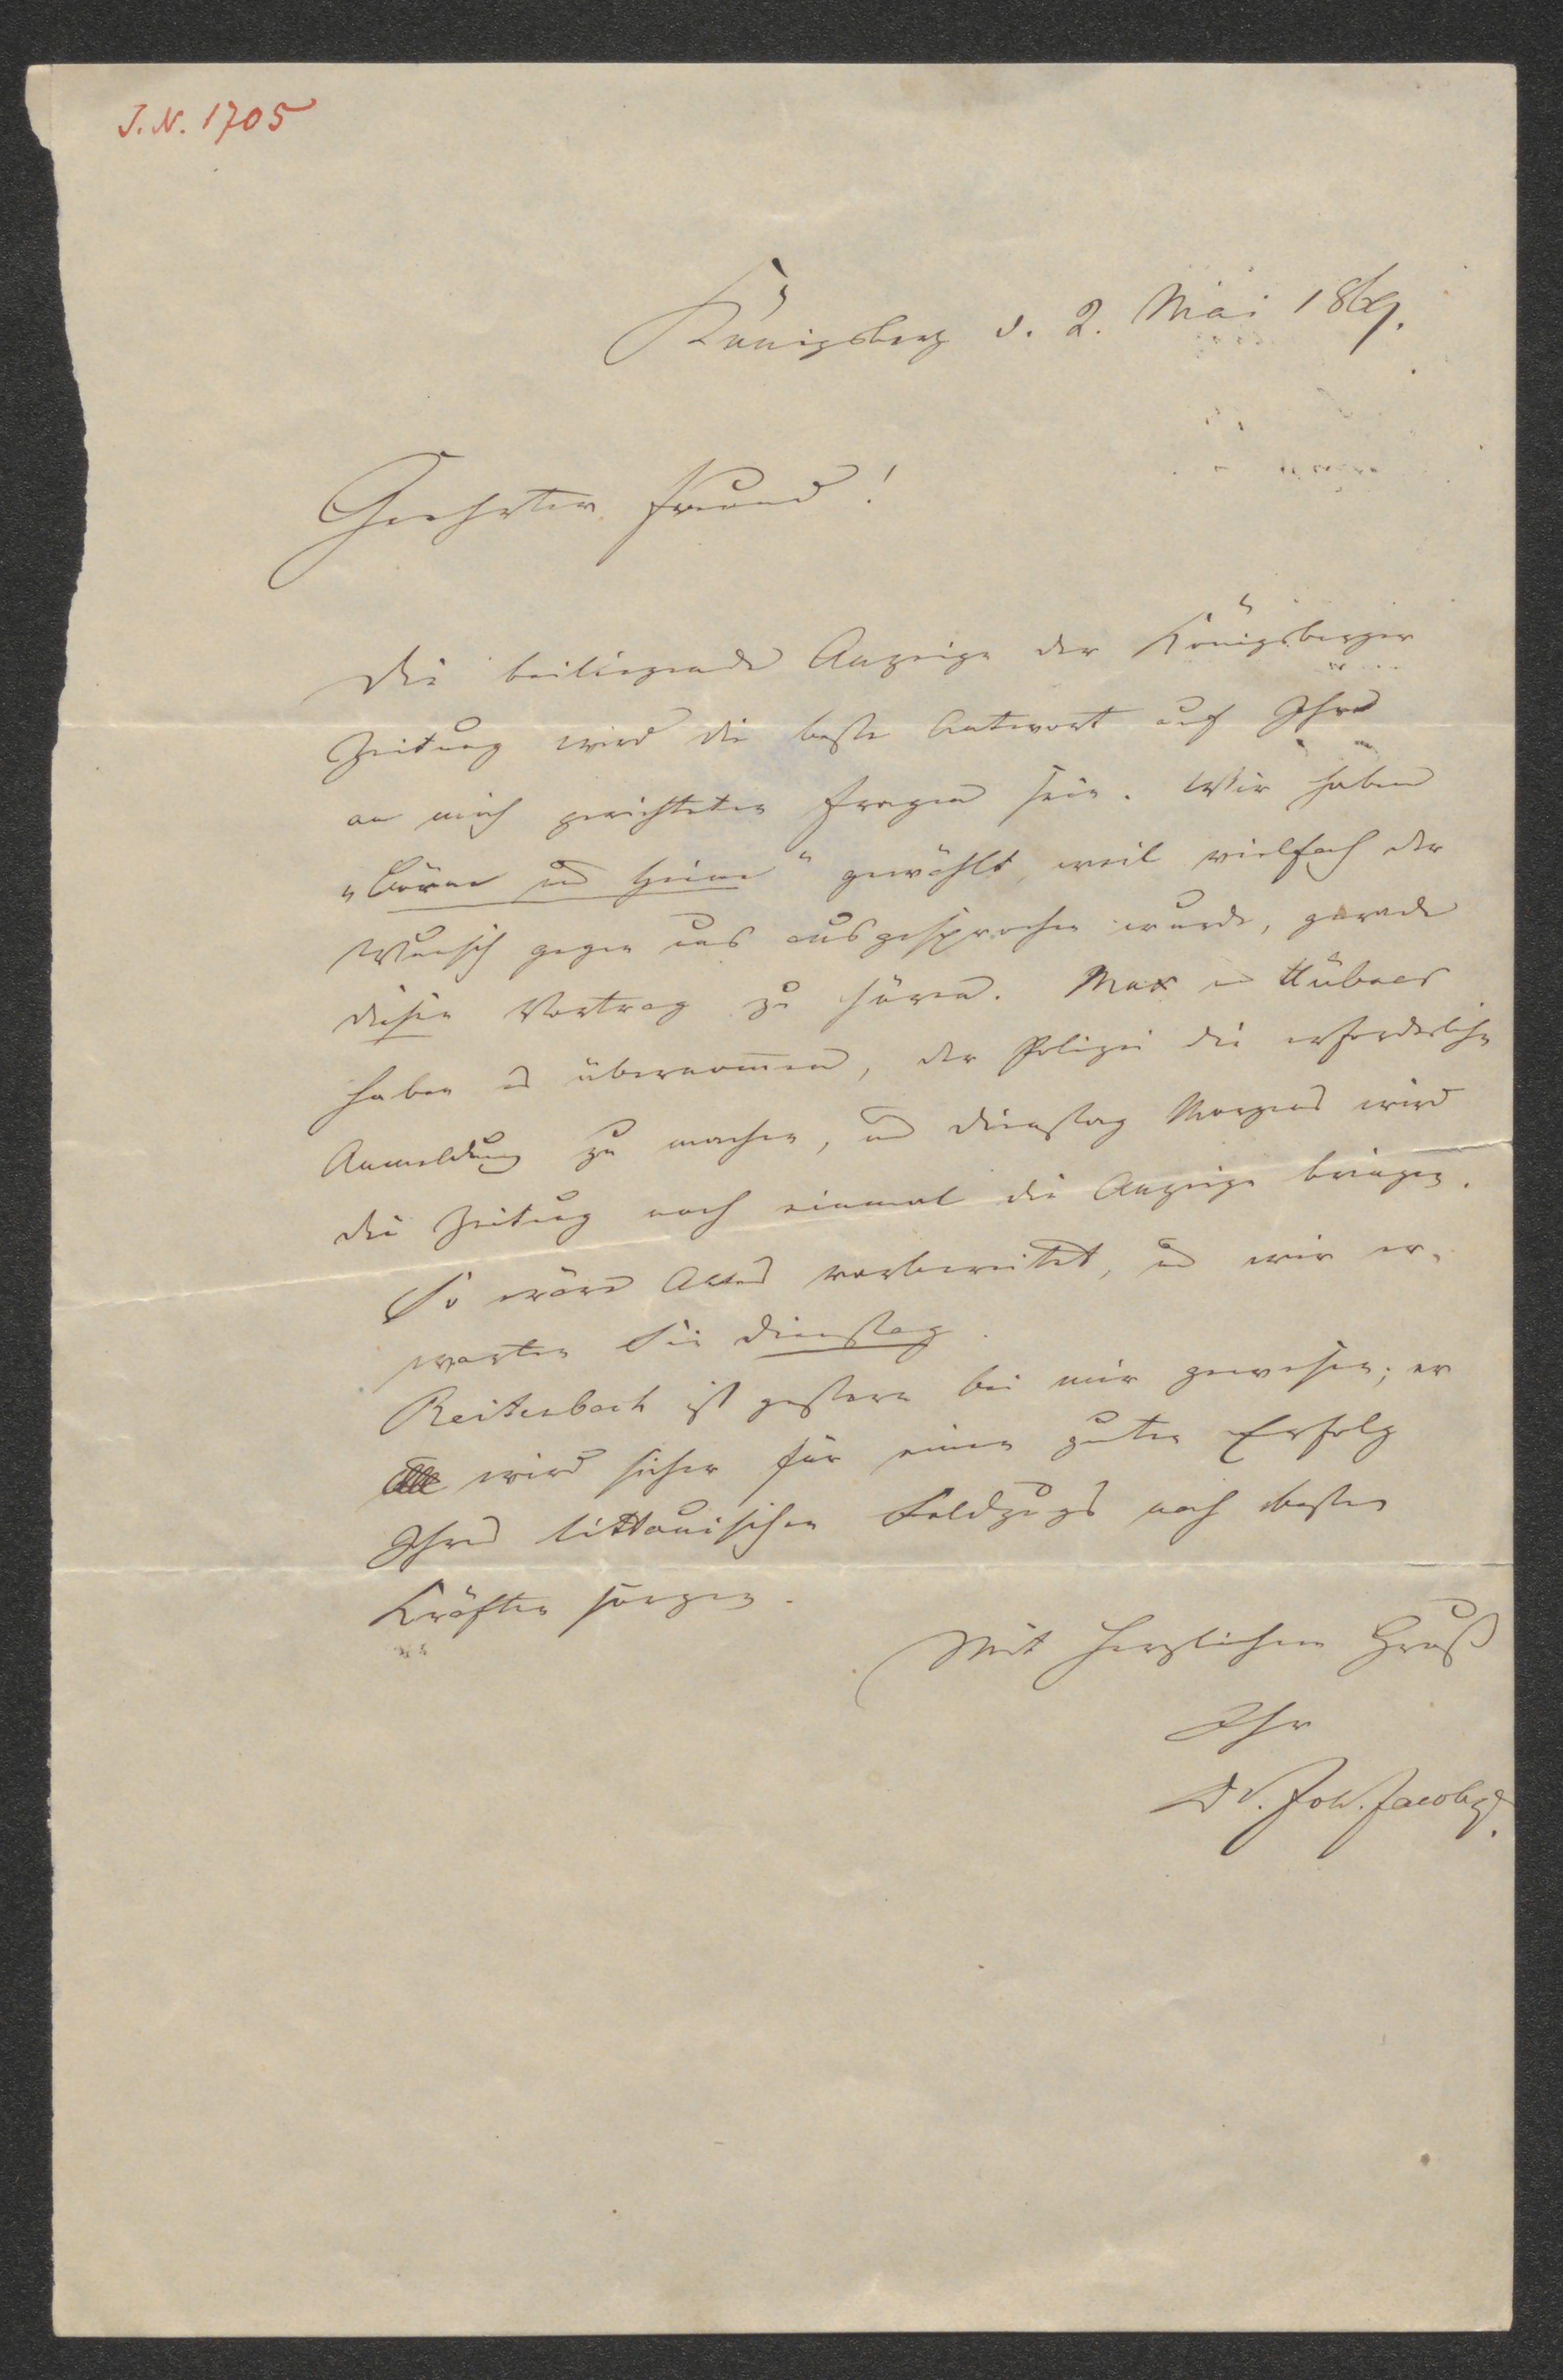 J. N. 1705
Königsberg d. 2. Mai 1869.
Geehrter Freund!
Die beiliegende Anzeige der Königsberger
Zeitung wird die beste Antwort auf Ihre
an mich gerichteten Fragen sein. Wir haben
„Börne und Heine" gewählt, weil vielfach der
Wunsch gegen uns ausgesprochen wurde, gerade
diesen Vortrag zu hören. Max u Hübner
haben es übernommen, der Polizei die erforderliche
Anmeldung zu machen, und Dienstag Morgens wird
die Zeitung noch einmal die Anzeige bringen.
So wäre Alles vorbereitet, und wir er-
warten Sie Dienstag.
Reitenbach ist gestern bei mir gewesen; er
wird sicher für einen guten Erfolg
Ihres littauischen Feldzugs nach besten
Kräften sorgen.
Mit herzlichem Gruß
Ihr
Dr. Joh. Jacoby.